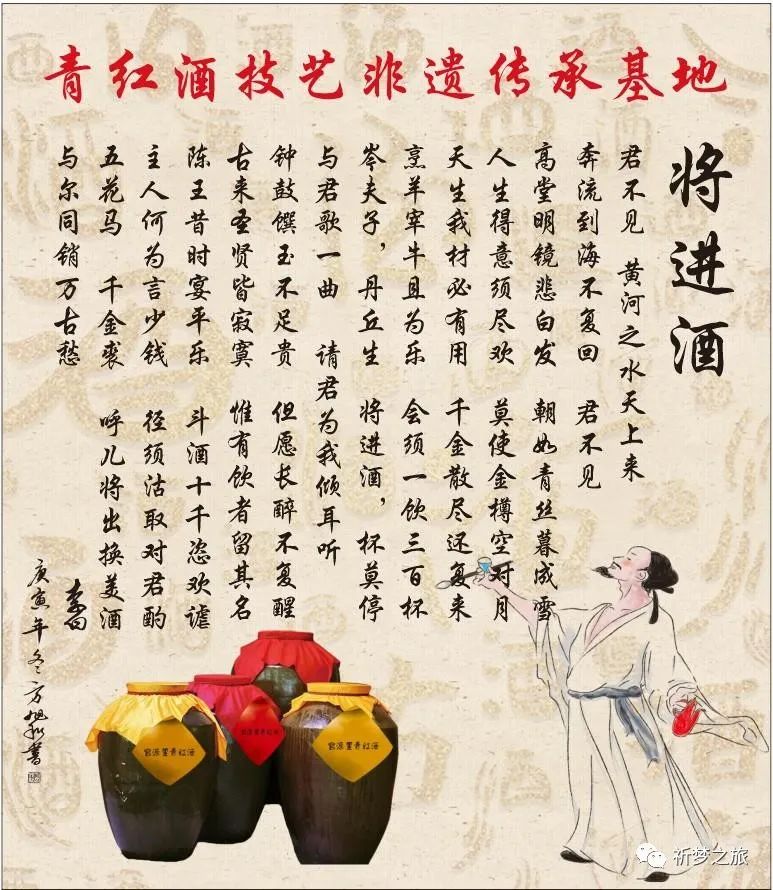 青红酒技艺非遗传承基地
将进酒
君不见 黄河之水天上来
奔流到海不复回 君不见
高堂明镜悲白发 朝如青丝暮成雪
人生得意须尽欢 莫使金樽空对月
天生我材必有用 千金散尽还复来
烹羊宰牛且为乐 会须一饮三百杯
岑夫子，丹丘生 将进酒，杯莫停
与君歌一曲 请君为我倾耳听
钟鼓馔玉不足贵 但愿长醉不复醒
古来圣贤皆寂寞 惟有饮者留其名
陈王昔时宴平乐 斗酒十千恣欢谑
主人何为言少钱 径须沽取对君酌
五花马 千金裘 呼儿将出换美酒
与尔同销万古愁
李白
庚寅年冬方旭书
官源里青红酒
官源里青红酒
官源里青红酒
祈梦之旅